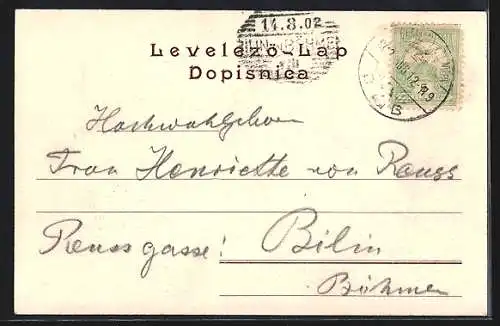 14.8.02
Levelező-Lap
Dopisnica
Hochwohlgeboren
Frau Henriette von Reuss
Reussgasse! Bilin
Böhmen